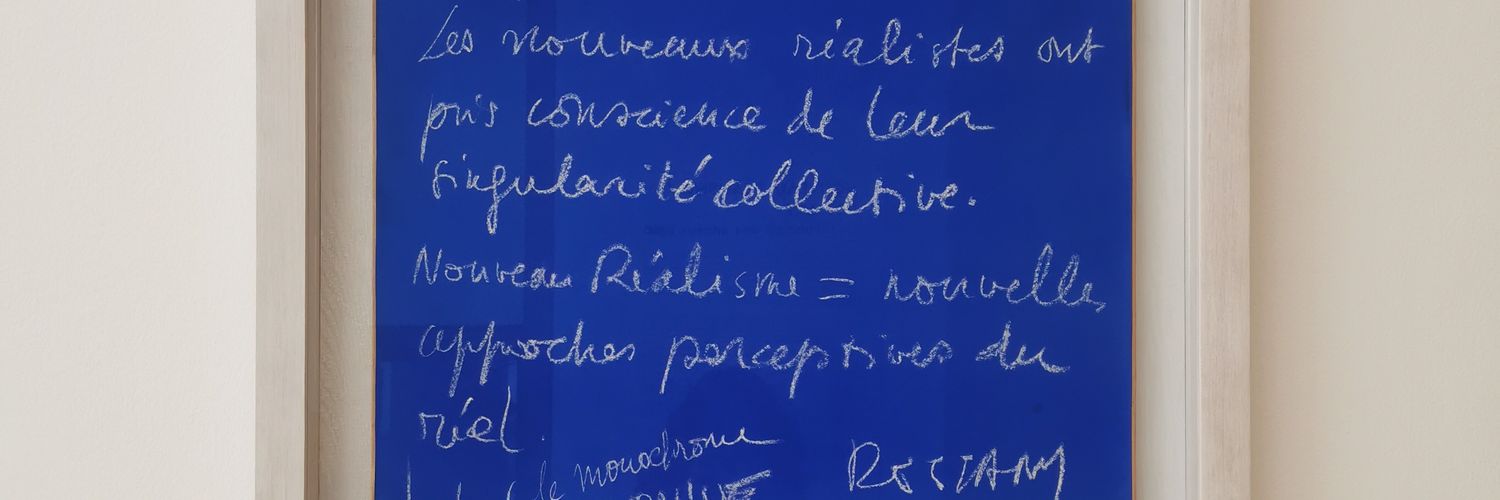 Les nouveaux réalistes ont
pris conscience de leur
singularité collective.
Nouveau Réalisme = nouvelles
approches perceptives du
réal.
le monochrome
RESTANY